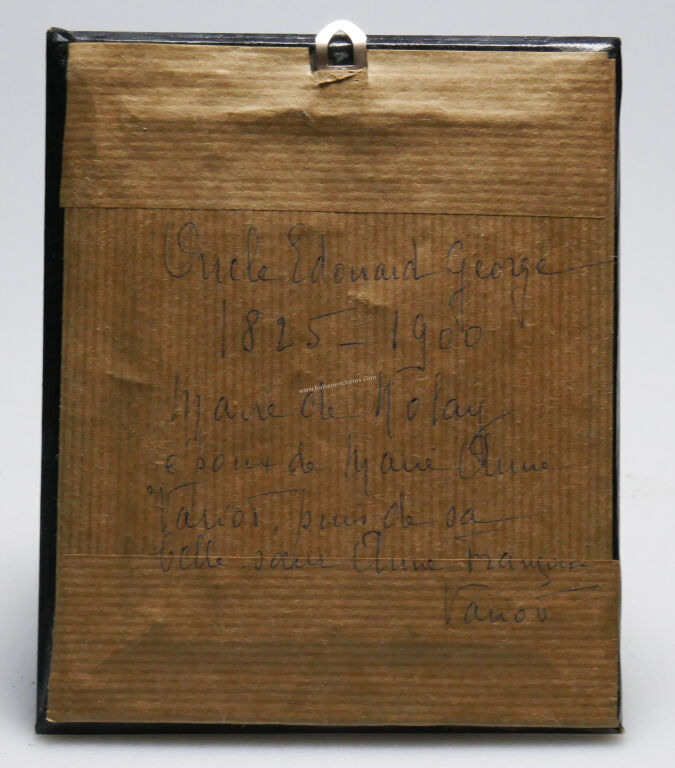 Oncle Edouard George
1825 – 1900
www.balsanencheres.com
Maire de Nolay
époux de Marie Anne
Variot, puis de sa
belle sœur Anne Françoise
Variot